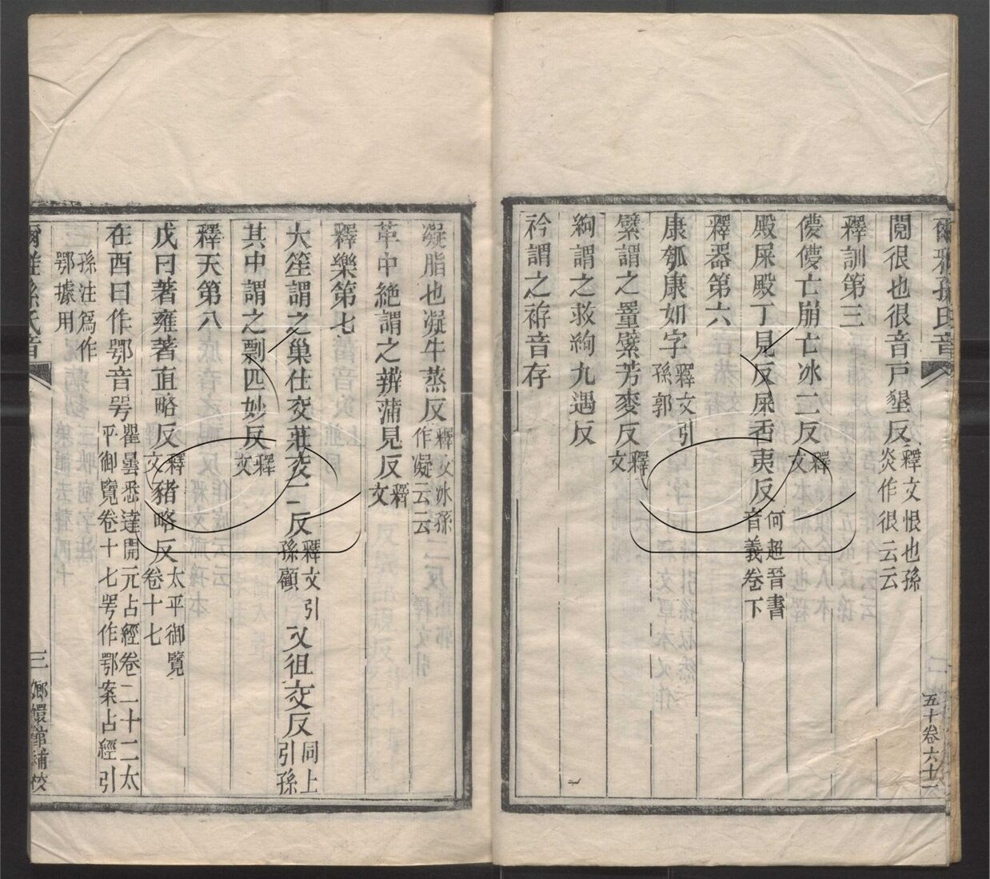 爾雅孫氏音
五十卷六十二
䦧很也很音戸墾反釋文恨也孫炎作很云云
釋訓第三
儚儚亡崩亡冰二反釋文
殿屎殿丁見反屎香夷反何超晉書音義卷下
釋器第六
康瓠康如字釋文引孫郭
繴謂之罿繴芳麥反釋文
絇謂之救絇九遇反
衿謂之袸音存
凝脂也凝牛蒸反釋文冰孫作凝云云
革中絶謂之辨蒲見反釋文
釋樂第七
大笙謂之巢仕交莊交二反釋文引孫顧又徂交反同上引孫
其中謂之剽匹妙反釋文
釋天第八
戊曰著雍著直略反釋文豬略反太平御覽卷十七
在酉曰作鄂音咢瞿曇悉達開元占經卷二十二太平御覽卷十七咢作鄂案占經引
孫注爲作鄂據用
爾雅孫氏音
三
嫏嬛館補校